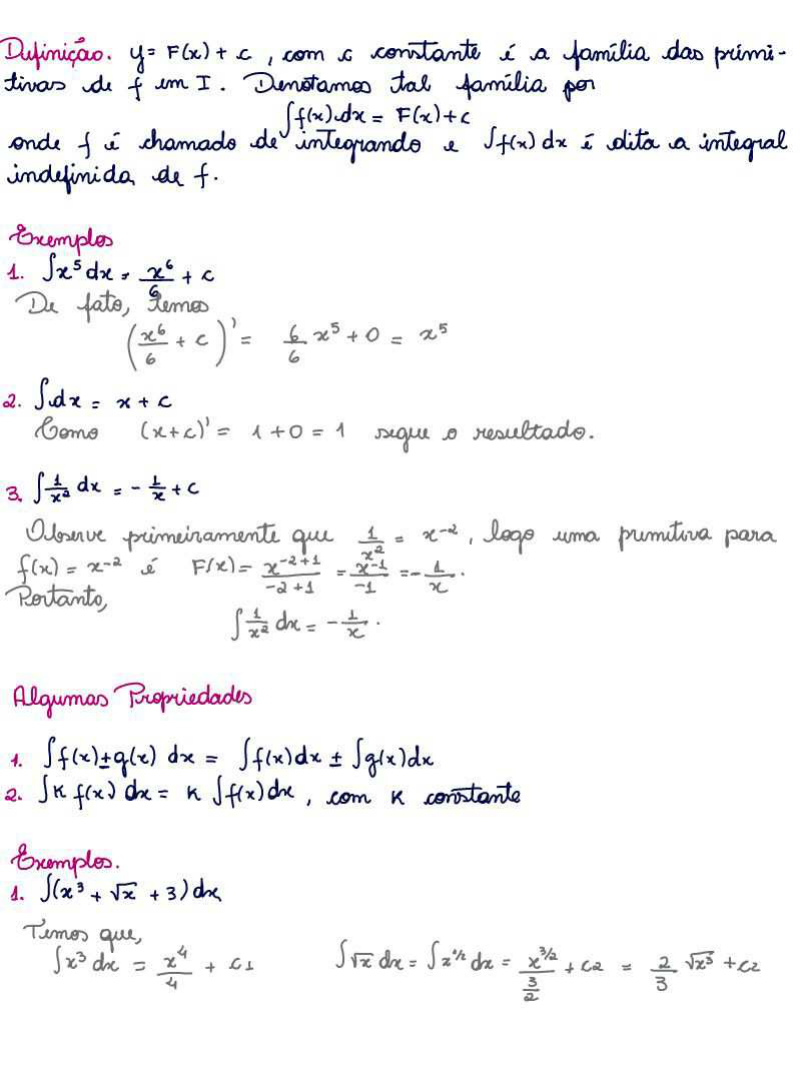 Definição. y = F(x) + c, com c constante é a família das primi-
tivas de f em I. Denotamos tal família por
∫f(x).dx = F(x)+c
onde f é chamado de integrando e ∫f(x) dx é dita a integral
indefinida de f.
Exemplos
1. ∫x⁵ dx = x⁶/6 + c
De fato, temos
(x⁶/6 + c)' = 6/6 x⁵ + 0 = x⁵
2. ∫.dx = x + c
Como (x+c)' = 1+0 = 1 segue o resultado.
3. ∫1/x² dx = -1/x + c
Observe primeiramente que 1/x² = x⁻², logo uma primitiva para
f(x) = x⁻² é F(x) = x⁻²⁺¹/-2+1 = x⁻¹/-1 = -1/x.
Portanto,
∫1/x² dx = -1/x.
Algumas Propriedades
1. ∫f(x)±g(x) dx = ∫f(x)dx ± ∫g(x)dx
2. ∫K f(x) dx = K ∫f(x)dx, com K constante
Exemplos.
1. ∫(x³ + √x + 3) dx
Temos que,
∫x³ dx = x⁴/4 + c₁ ∫√x dx = ∫x^(1/2) dx = x^(3/2)/(3/2) + c₂ = 2/3 √x³ + c₂